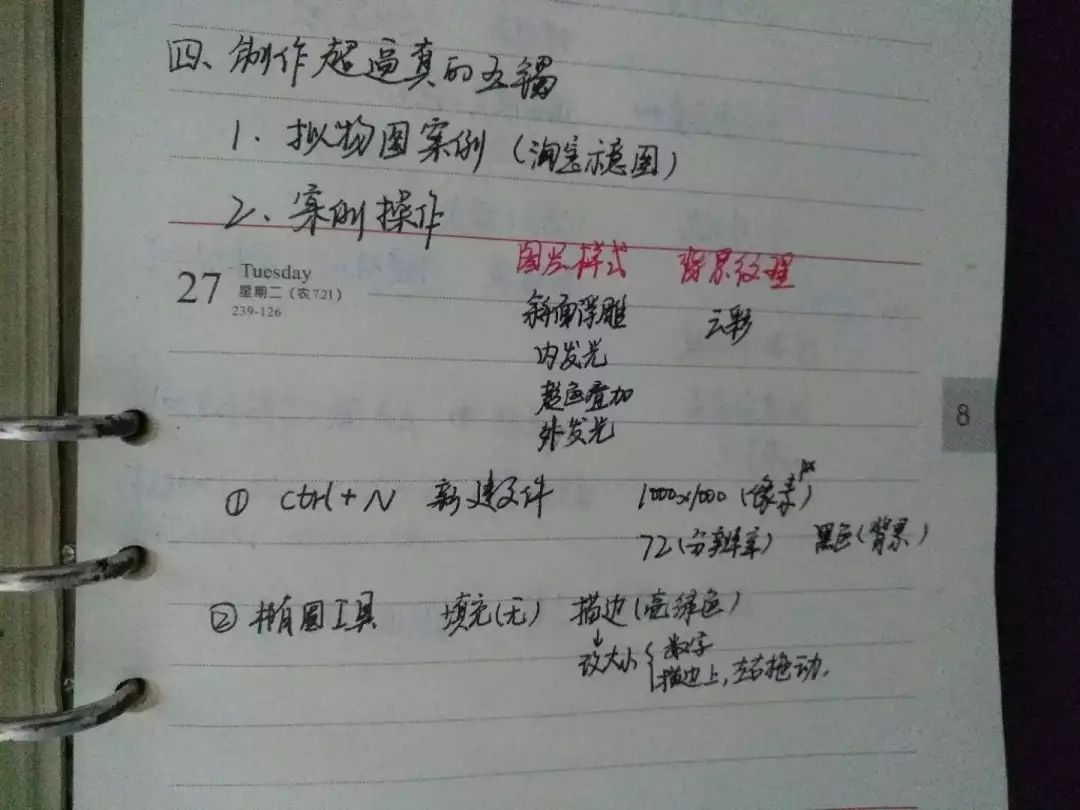 四、制作超逼真的玉镯
1. 拟物图案例（淘宝示意图）
2、案例操作
图层样式 背景纹理
27 Tuesday
星期二（农7.21）
239-126
斜面浮雕 云彩
内发光
颜色叠加
外发光
① Ctrl+N 新建文件 1000x1000（像素）px
72（分辨率） 黑色（背景）
② 椭圆工具 填充（无） 描边（亮绿色）
↓
改大小 { 数字
描边上，左右拖动.
8